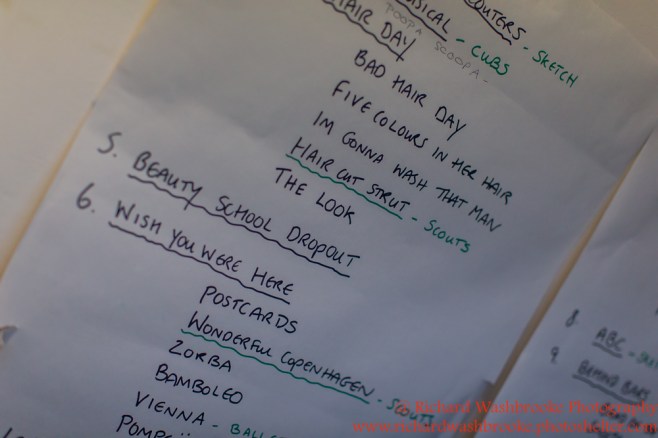 OUTERS - SKETCH
SICAL - CUBS
POOPA SCOOPA -
HAIR DAY
BAD HAIR DAY
FIVE COLOURS IN HER HAIR
IM GONNA WASH THAT MAN
HAIR CUT STRUT - SCOUTS
THE LOOK
5. BEAUTY SCHOOL DROPOUT
6. WISH YOU WERE HERE
POSTCARDS
WONDERFUL COPENHAGEN - SCOUTS
ZORBA
BAMBOLEO
VIENNA - BALL
POMPEII
8. ABC - SK
9. BEHIND BARS
© Richard Washbrooke Photography
www.richardwashbrooke.photoshelter.com